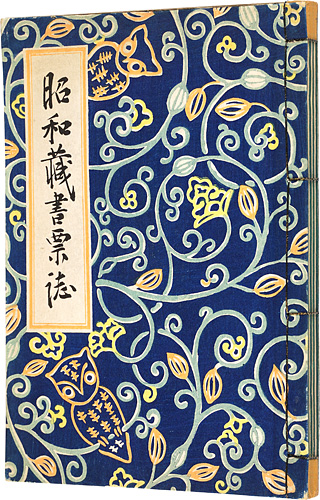 昭和藏書票誌